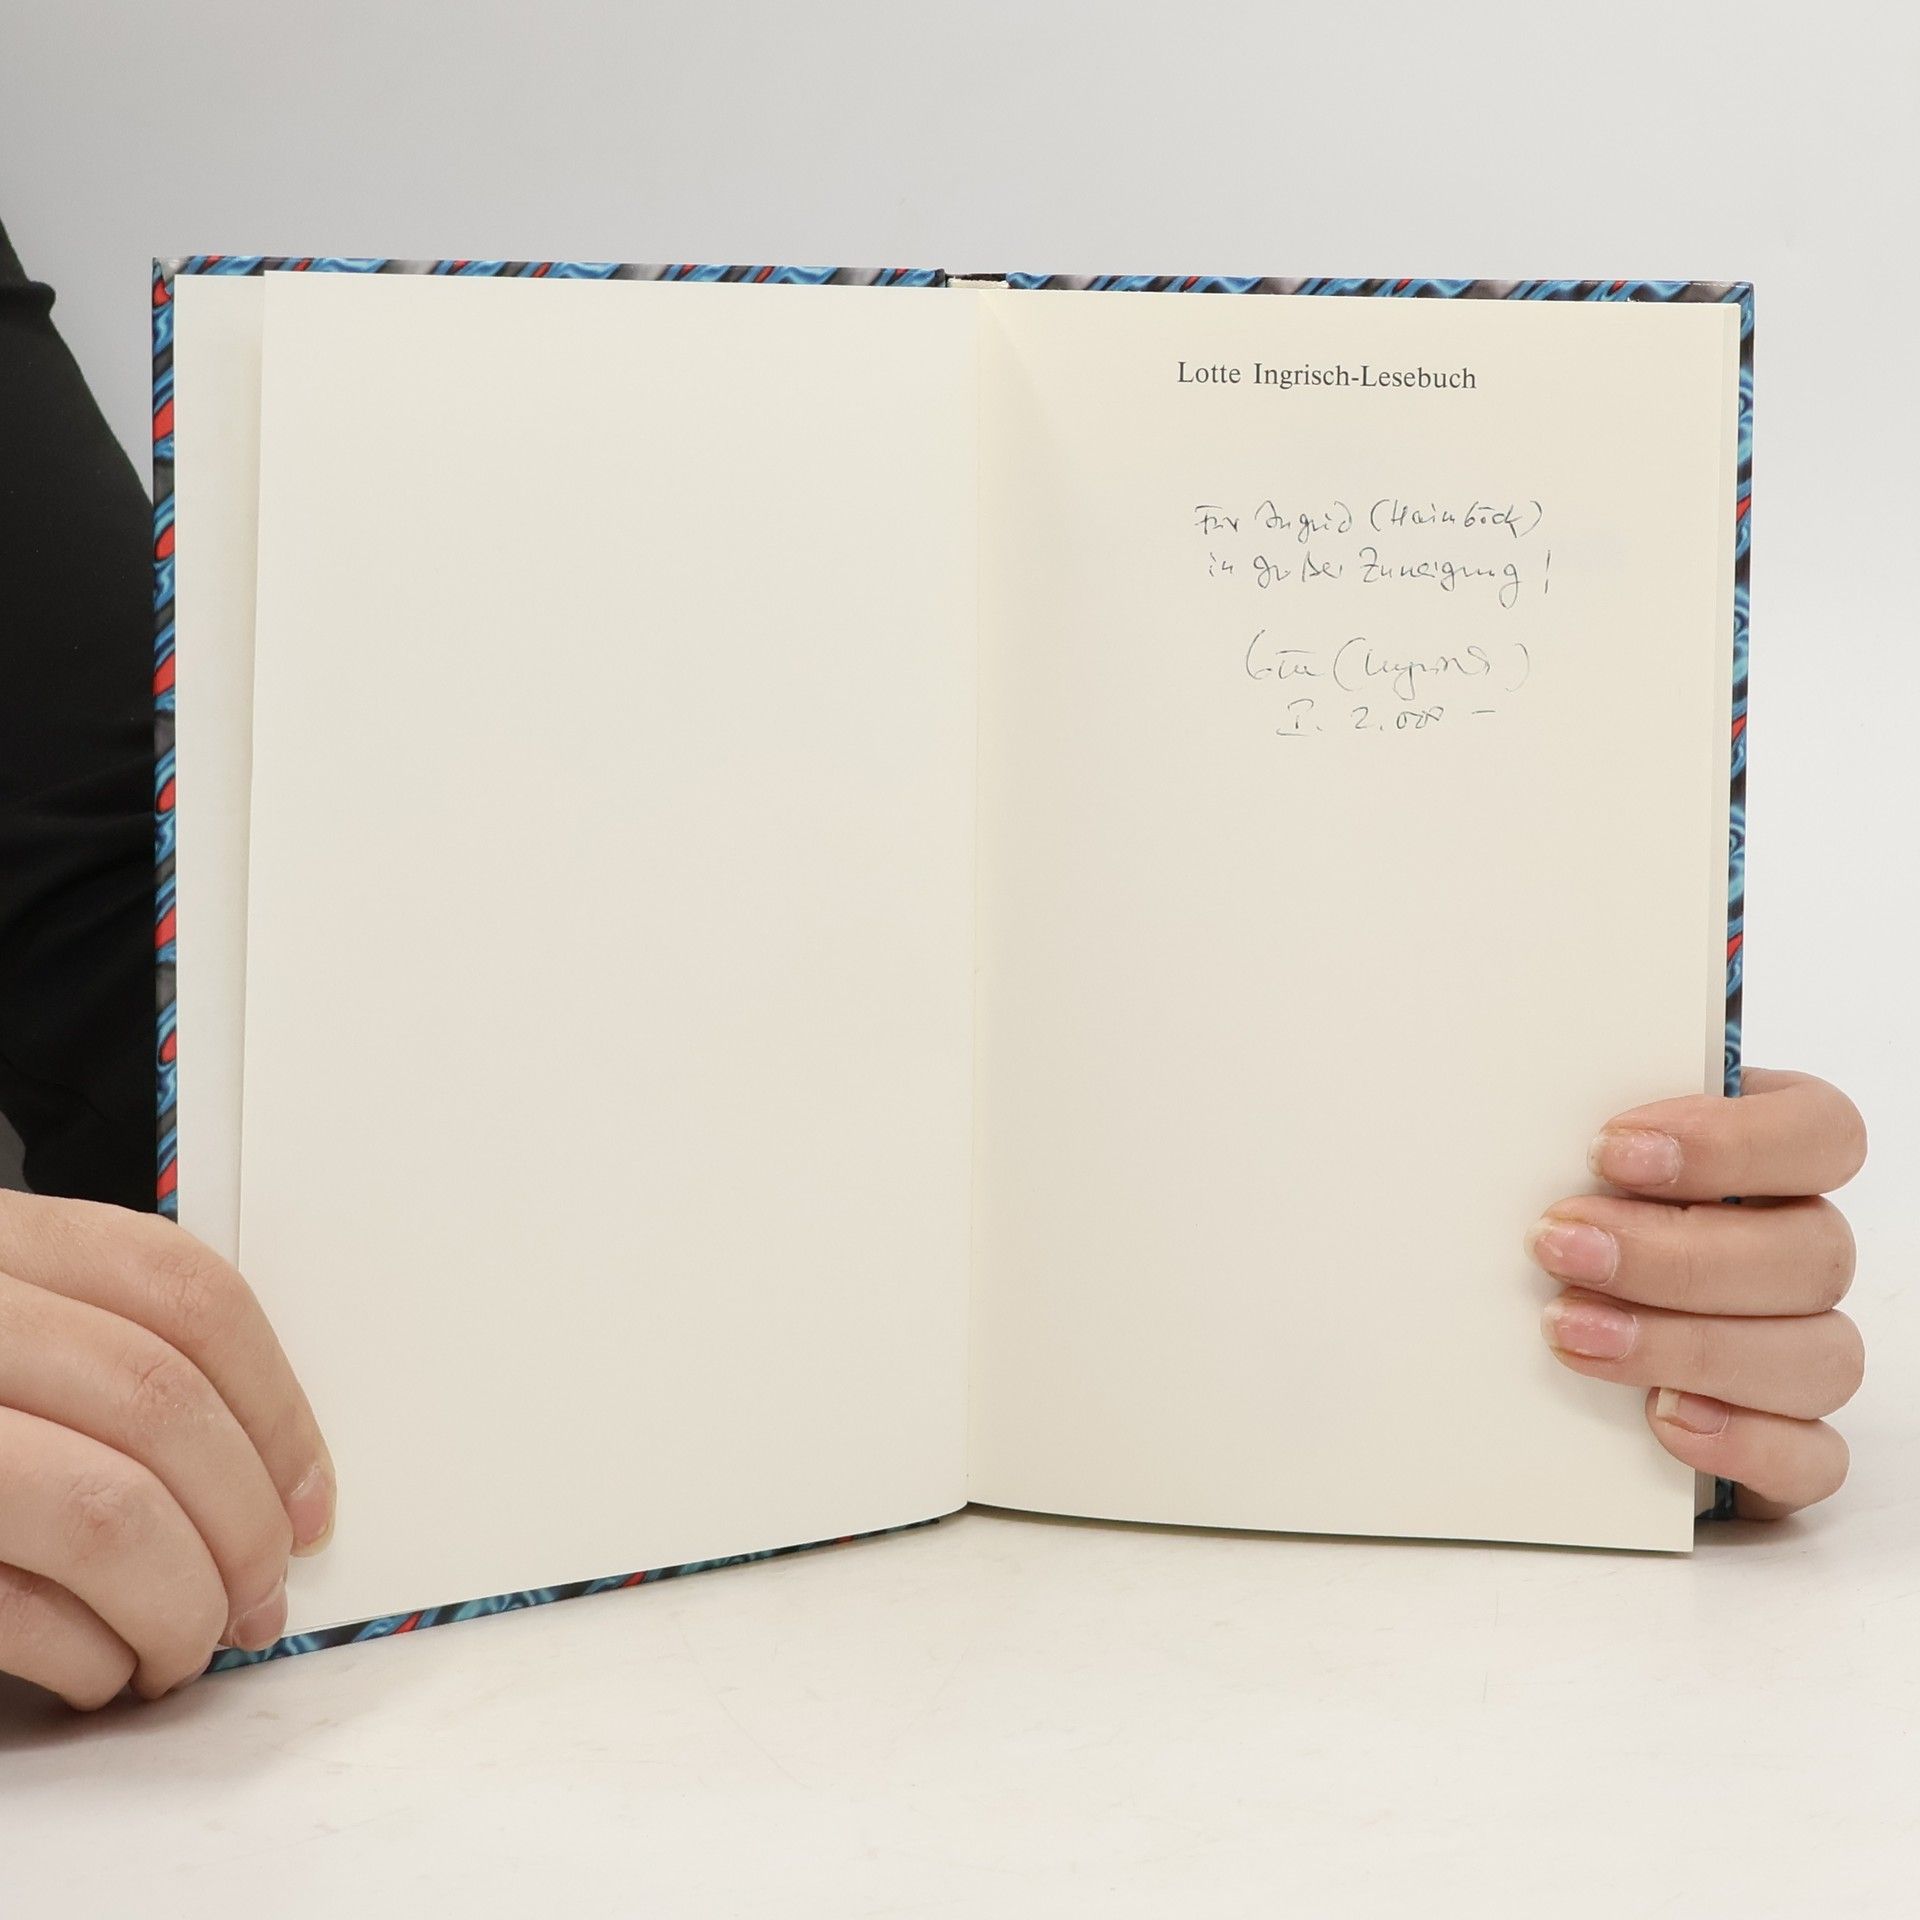 Lotte Ingrisch-Lesebuch
Für Ingrid (Haimböck)
in großer Zuneigung!
Lotte (Ingrisch)
I. 2.000 –